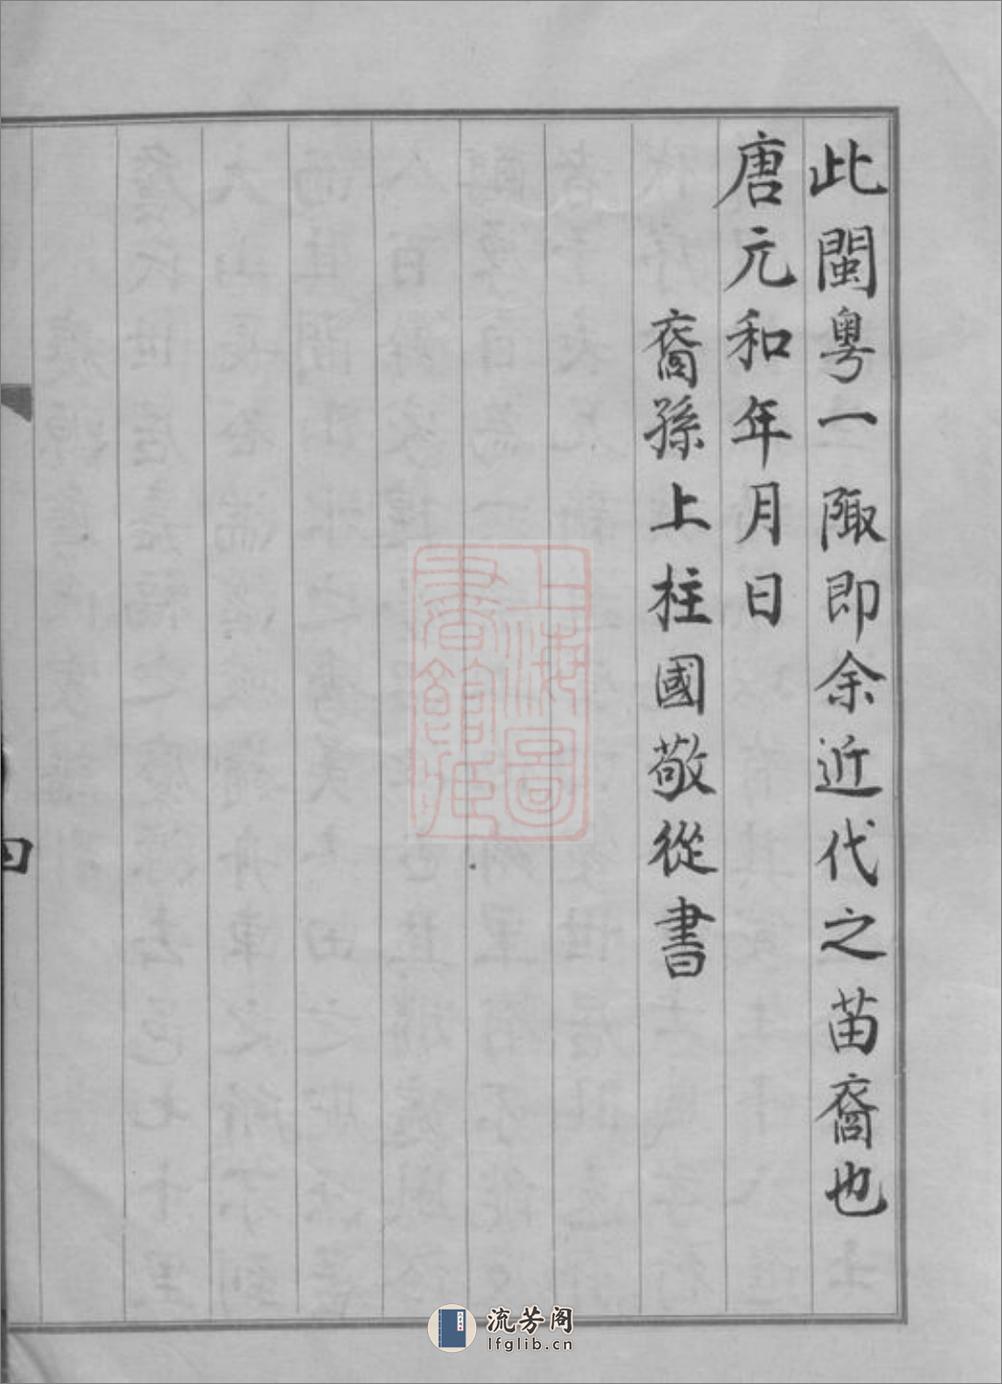 此閩粤一陬即余近代之苗裔也
唐元和年月日
裔孫上柱國敬從書
四
上海圖
書館藏
流芳阁
lfglib.cn